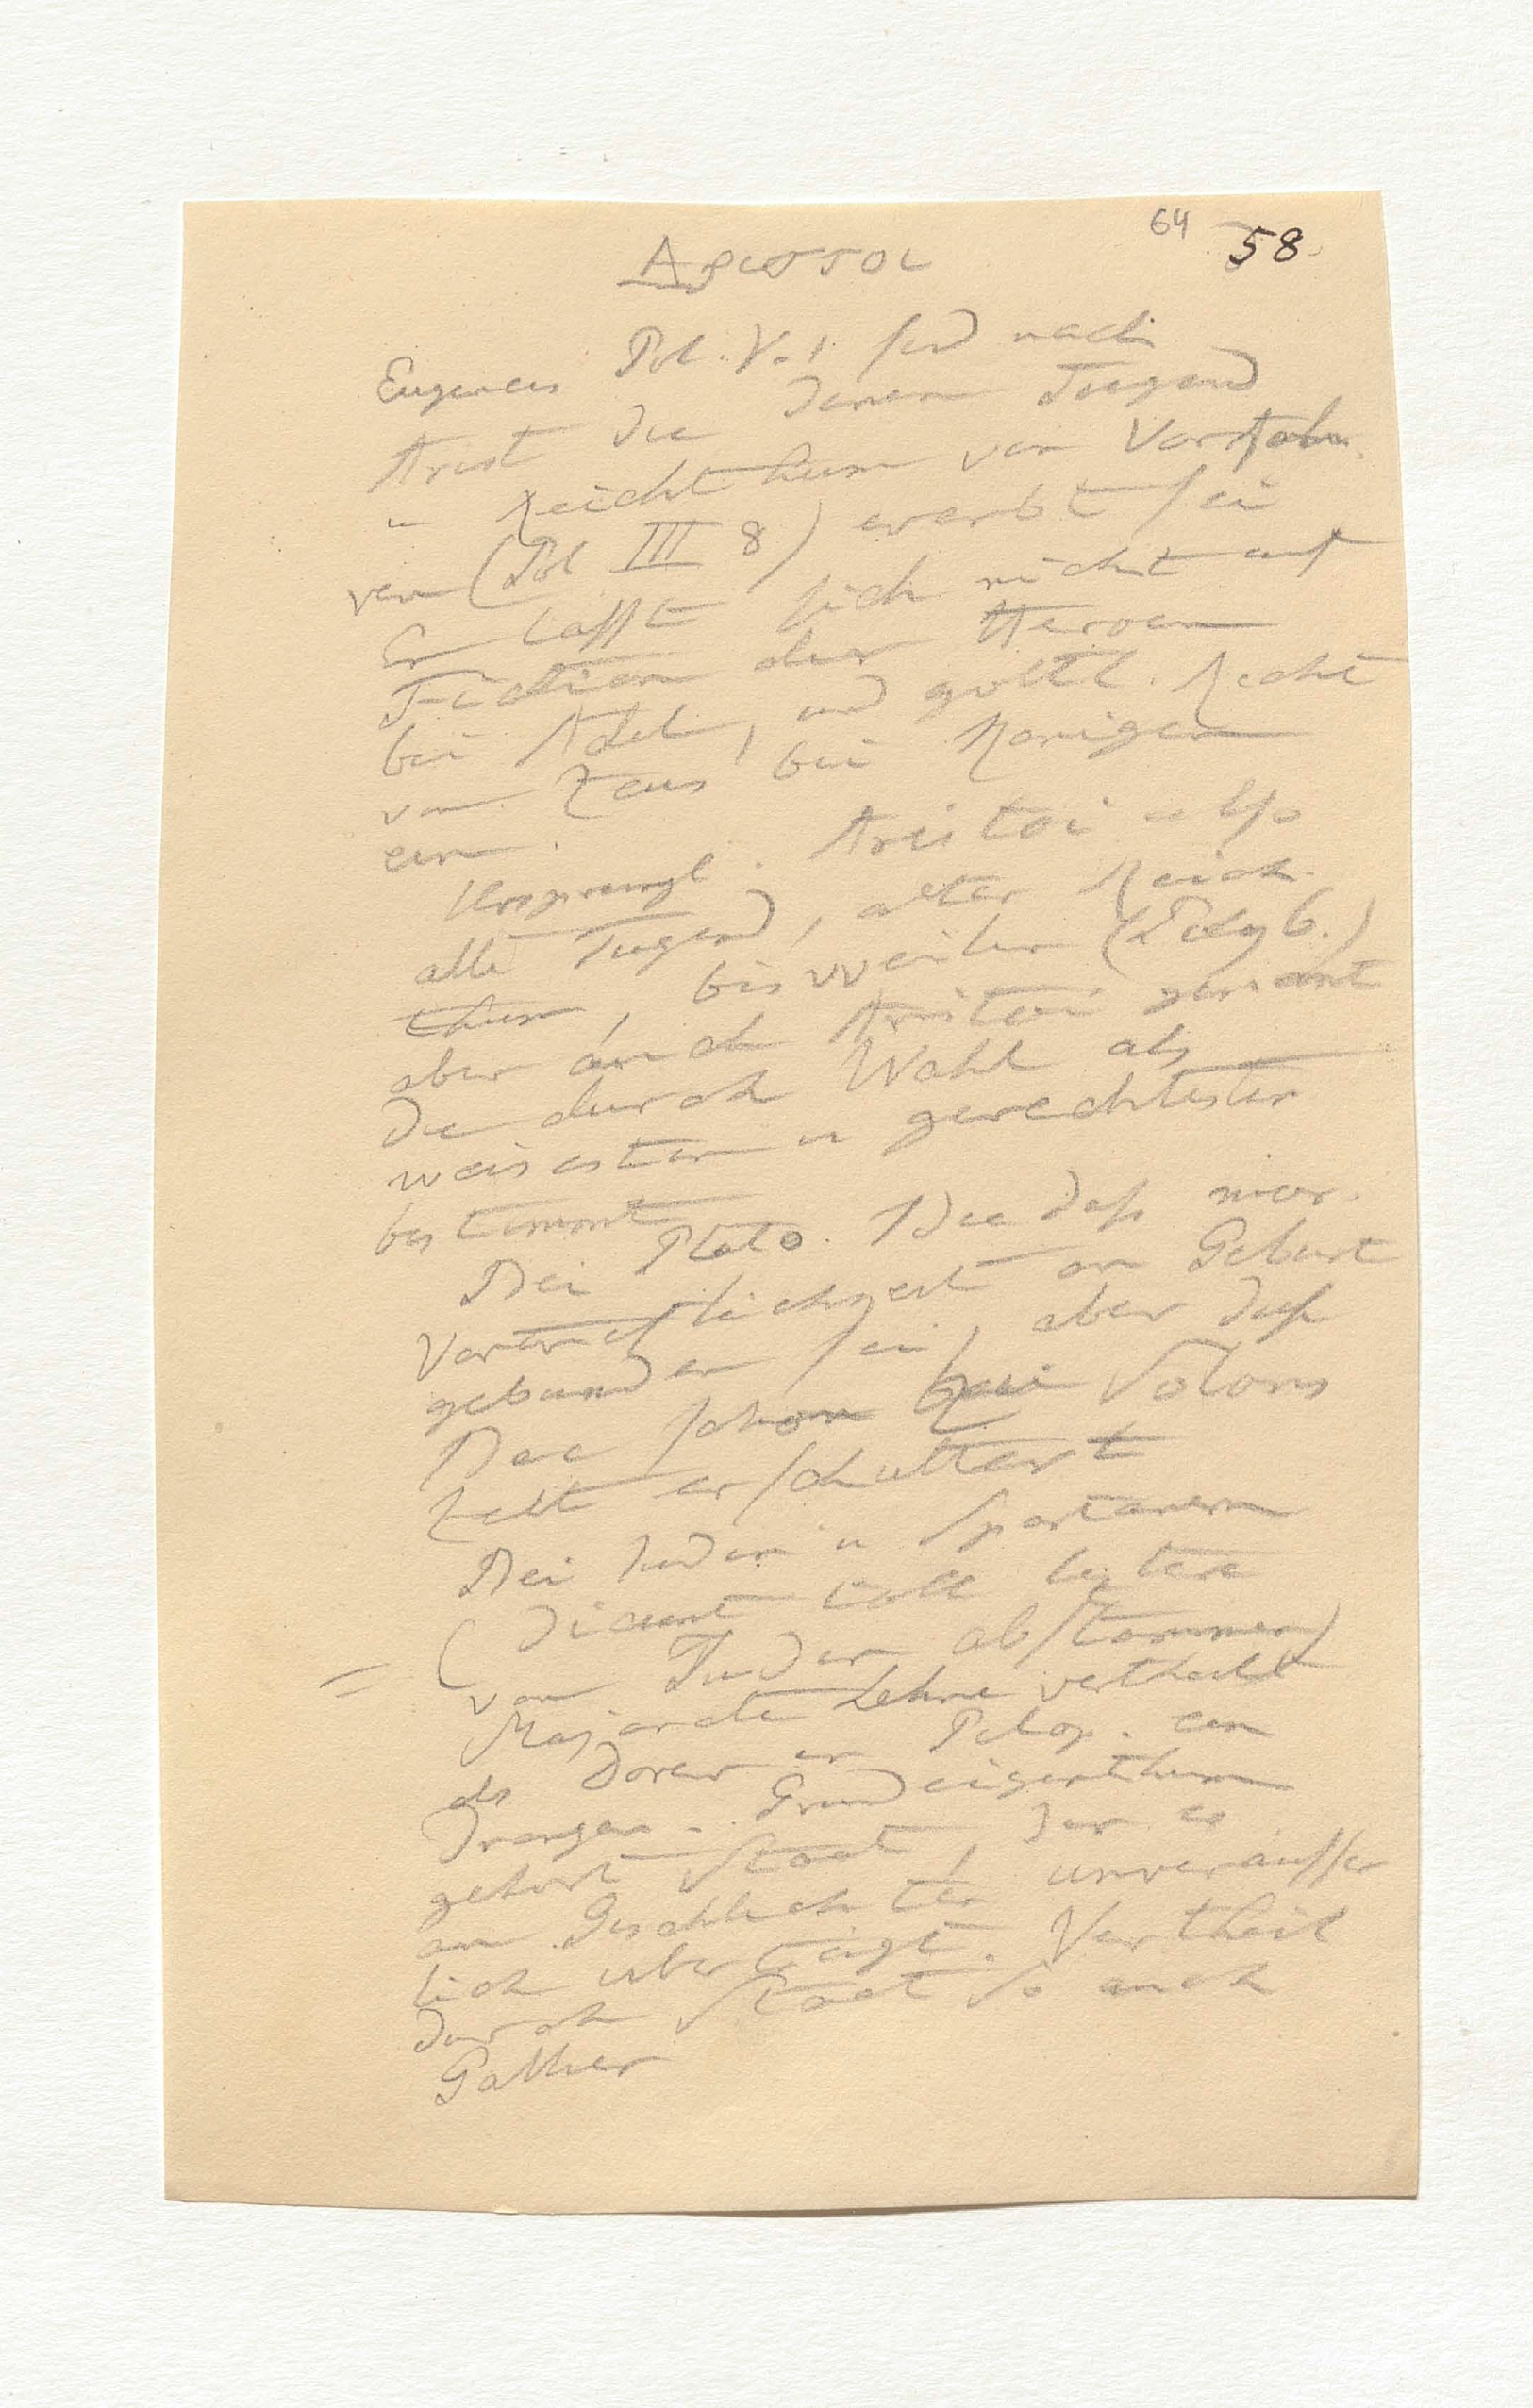 64 58
Αριστοι
Eugeneis Pol. V. 1 sind nach
Arist die denen Tugend
u Reichthum von Vorfah
ren (Pol III 8) ererbt sei
Er lässt sich nicht auf
Fiction der Heroen
bei Adel, und göttl. Recht
von Zeus bei Konigen
ein.
Ursprungl. Aristoi also
alte Tugend, alter Reich
thum, bisweilen (Polyb.)
aber auch Aristoi genant
die durch Wahl als
weisesten u gerechtesten
bestimmt
Bei Plato. Idee daß
Vortreflichkeit an Geburt
gebunden sei, aber diese
Idee schon Solons
Zeit erschüttert
Bei Juden u Spartanern
(dicunt letztere
von Juden abstammen)
= Majorate Lehne vertheilt
als Dorer in Pelop. ein
drangen. Grundeigenthum
gehort Staat, der es
an Geschlechter unveräusser
lich überträgt. Vertheil
durch Staat so auch